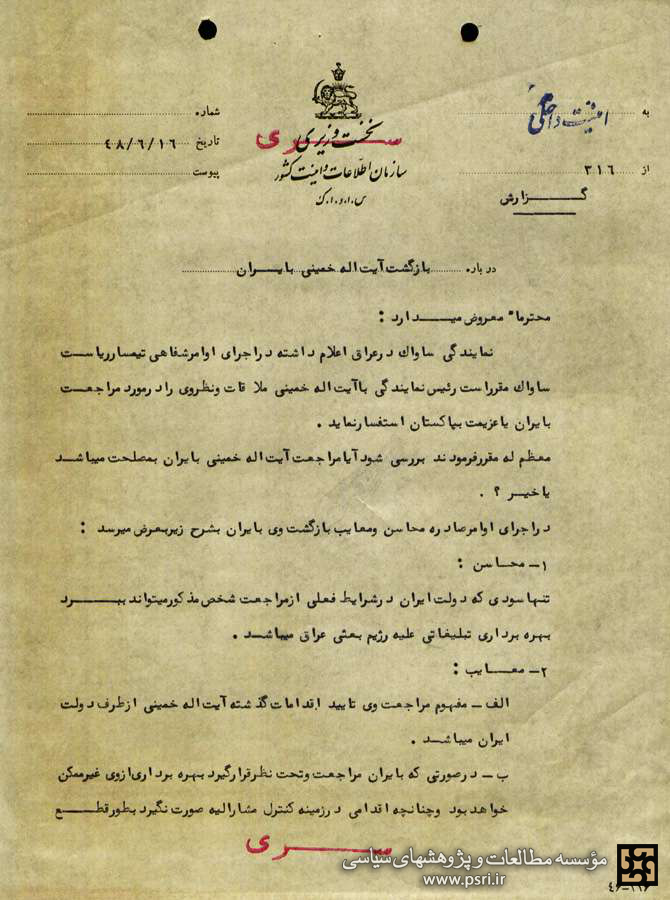 به امنیت داخلی
از ۳۱۶
گـــزارش
نخست وزیری
سـری
سازمان اطلاعات و امنیت کشور
س.ا.و.ا.ک
شماره
تاریخ ۴۸/۶/۱۶
پیوست
درباره بازگشت آیت اله خمینی بایـران
محترما" معروض میـدارد :
نمایندگی ساواک درعراق اعلام داشته دراجرای اوامرشفاهی تیمسارریاست
ساواک مقرراست رئیس نمایندگی باآیت اله خمینی ملاقات ونظروی رادرمورد مراجعت
بایران یاعزیمت بپاکستان استفسارنماید .
معظم له مقررفرمودند بررسی شودآیامراجعت آیت اله خمینی بایران بمصلحت میباشد
یاخیر ؟ .
دراجرای اوامرصادره محاسن ومعایب بازگشت وی بایران بشرح زیربعرض میرسد :
۱ـ محـاسن :
تنهاسودی که دولت ایران درشرایط فعلی ازمراجعت شخص مذکورمیتواند ببـرد
بهره برداری تبلیغاتی علیه رژیم بعثی عراق میباشـد .
۲ـ معـایب :
الف ـ مفهوم مراجعت وی تایید اقدامات گذشته آیت اله خمینی ازطرف دولت
ایران میباشـد .
ب ـ درصورتی که بایران مراجعت وتحت نظرقرارگیرد بهره برداری ازوی غیرممکن
خواهدبود وچنانچه اقدامی درزمینه کنترل مشارالیه صورت نگیرد بطورقطـع
سـری
مؤسسه مطالعات و پژوهشهای سیاسی
www.psri.ir